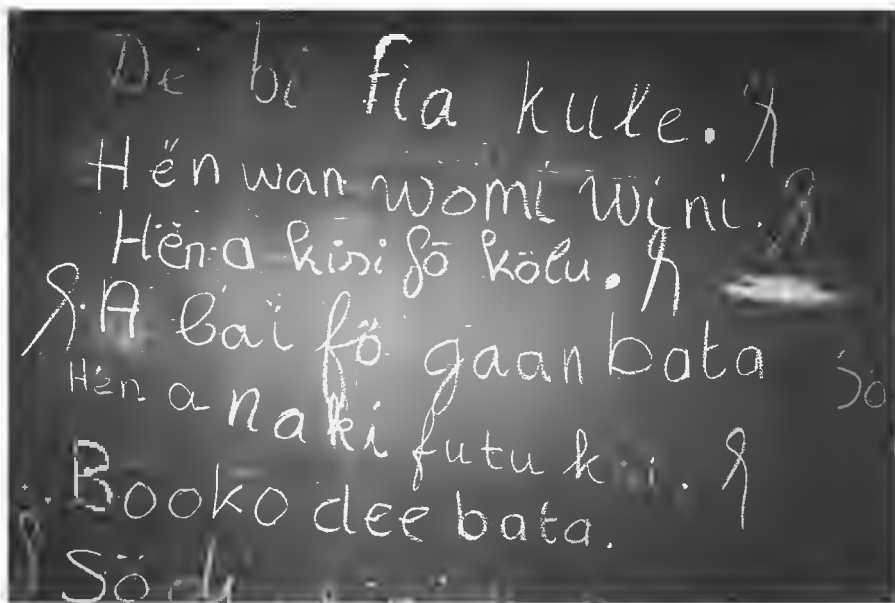 De bi fia kule.
Hën wan womi wini.
Hën a kisi fö kölu.
A bai fö gaan bata
Hën a naki futu
Booko dee bata.
Sö